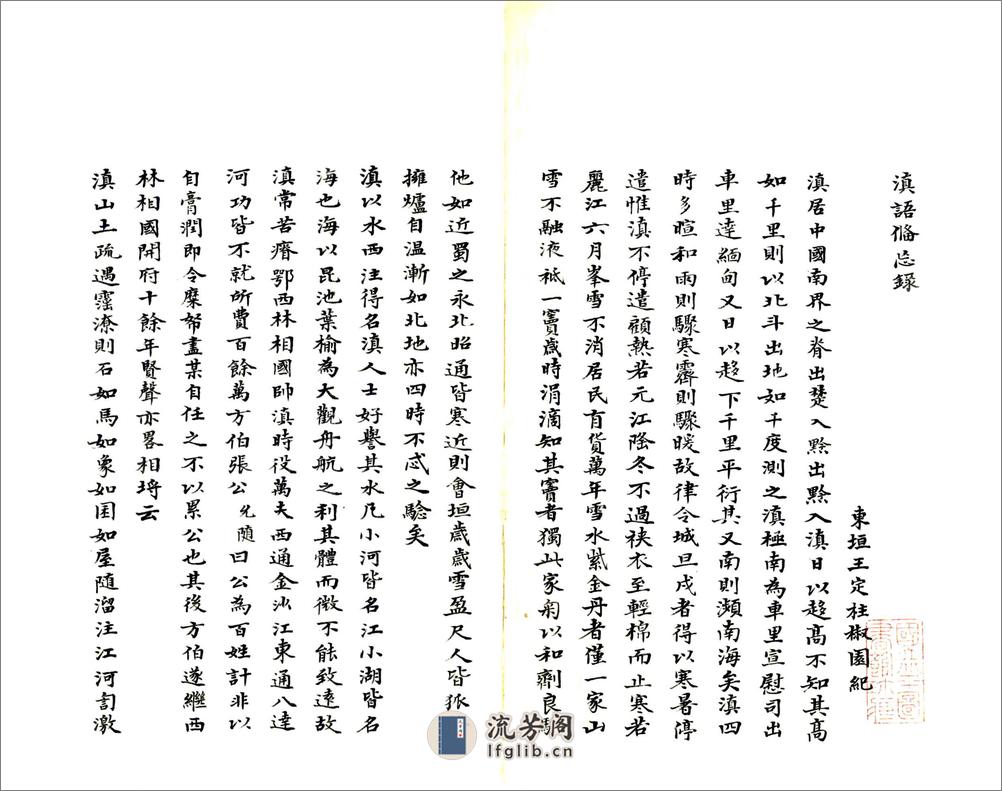 滇語備忘錄
東垣王定柱椒園紀
滇居中國南界之脊出楚入黔出黔入滇日以趍高不知其高
如千里則以北斗出地如千度測之滇極南為車里宣慰司出
車里達緬甸又日以趍下千里平衍其又南則瀕南海矣滇四
時多暄和雨則驟寒霽則驟暖故律令城旦戍者得以寒暑停
遣惟滇不停遣顧熱若元江隆冬不過裌衣至輕棉而止寒若
麗江六月峯雪不消居民有貨萬年雪水紫金丹者僅一家山
雪不融液祗一竇歲時涓滴知其竇者獨此家匊以和劑良驗
他如近蜀之永北昭通皆寒近則會垣歲歲雪盈尺人皆狐
擁爐自温漸如北地亦四時不忒之驗矣
滇以水西注得名滇人士好譽其水凡小河皆名江小湖皆名
海也海以昆池葉榆為大觀舟航之利其體而微不能致遠故
滇常苦瘠鄂西林相國帥滇時役萬夫西通金沙江東通八達
河功皆不就所費百餘萬方伯張公允隨曰公為百姓計非以
自膏潤即令糜帑盡某自任之不以累公也其後方伯遂繼西
林相國開府十餘年賢聲亦畧相埒云
滇山土疏遇霪潦則石如馬如象如囷如屋隨溜注江河訇激
流芳阁
lfglib.cn